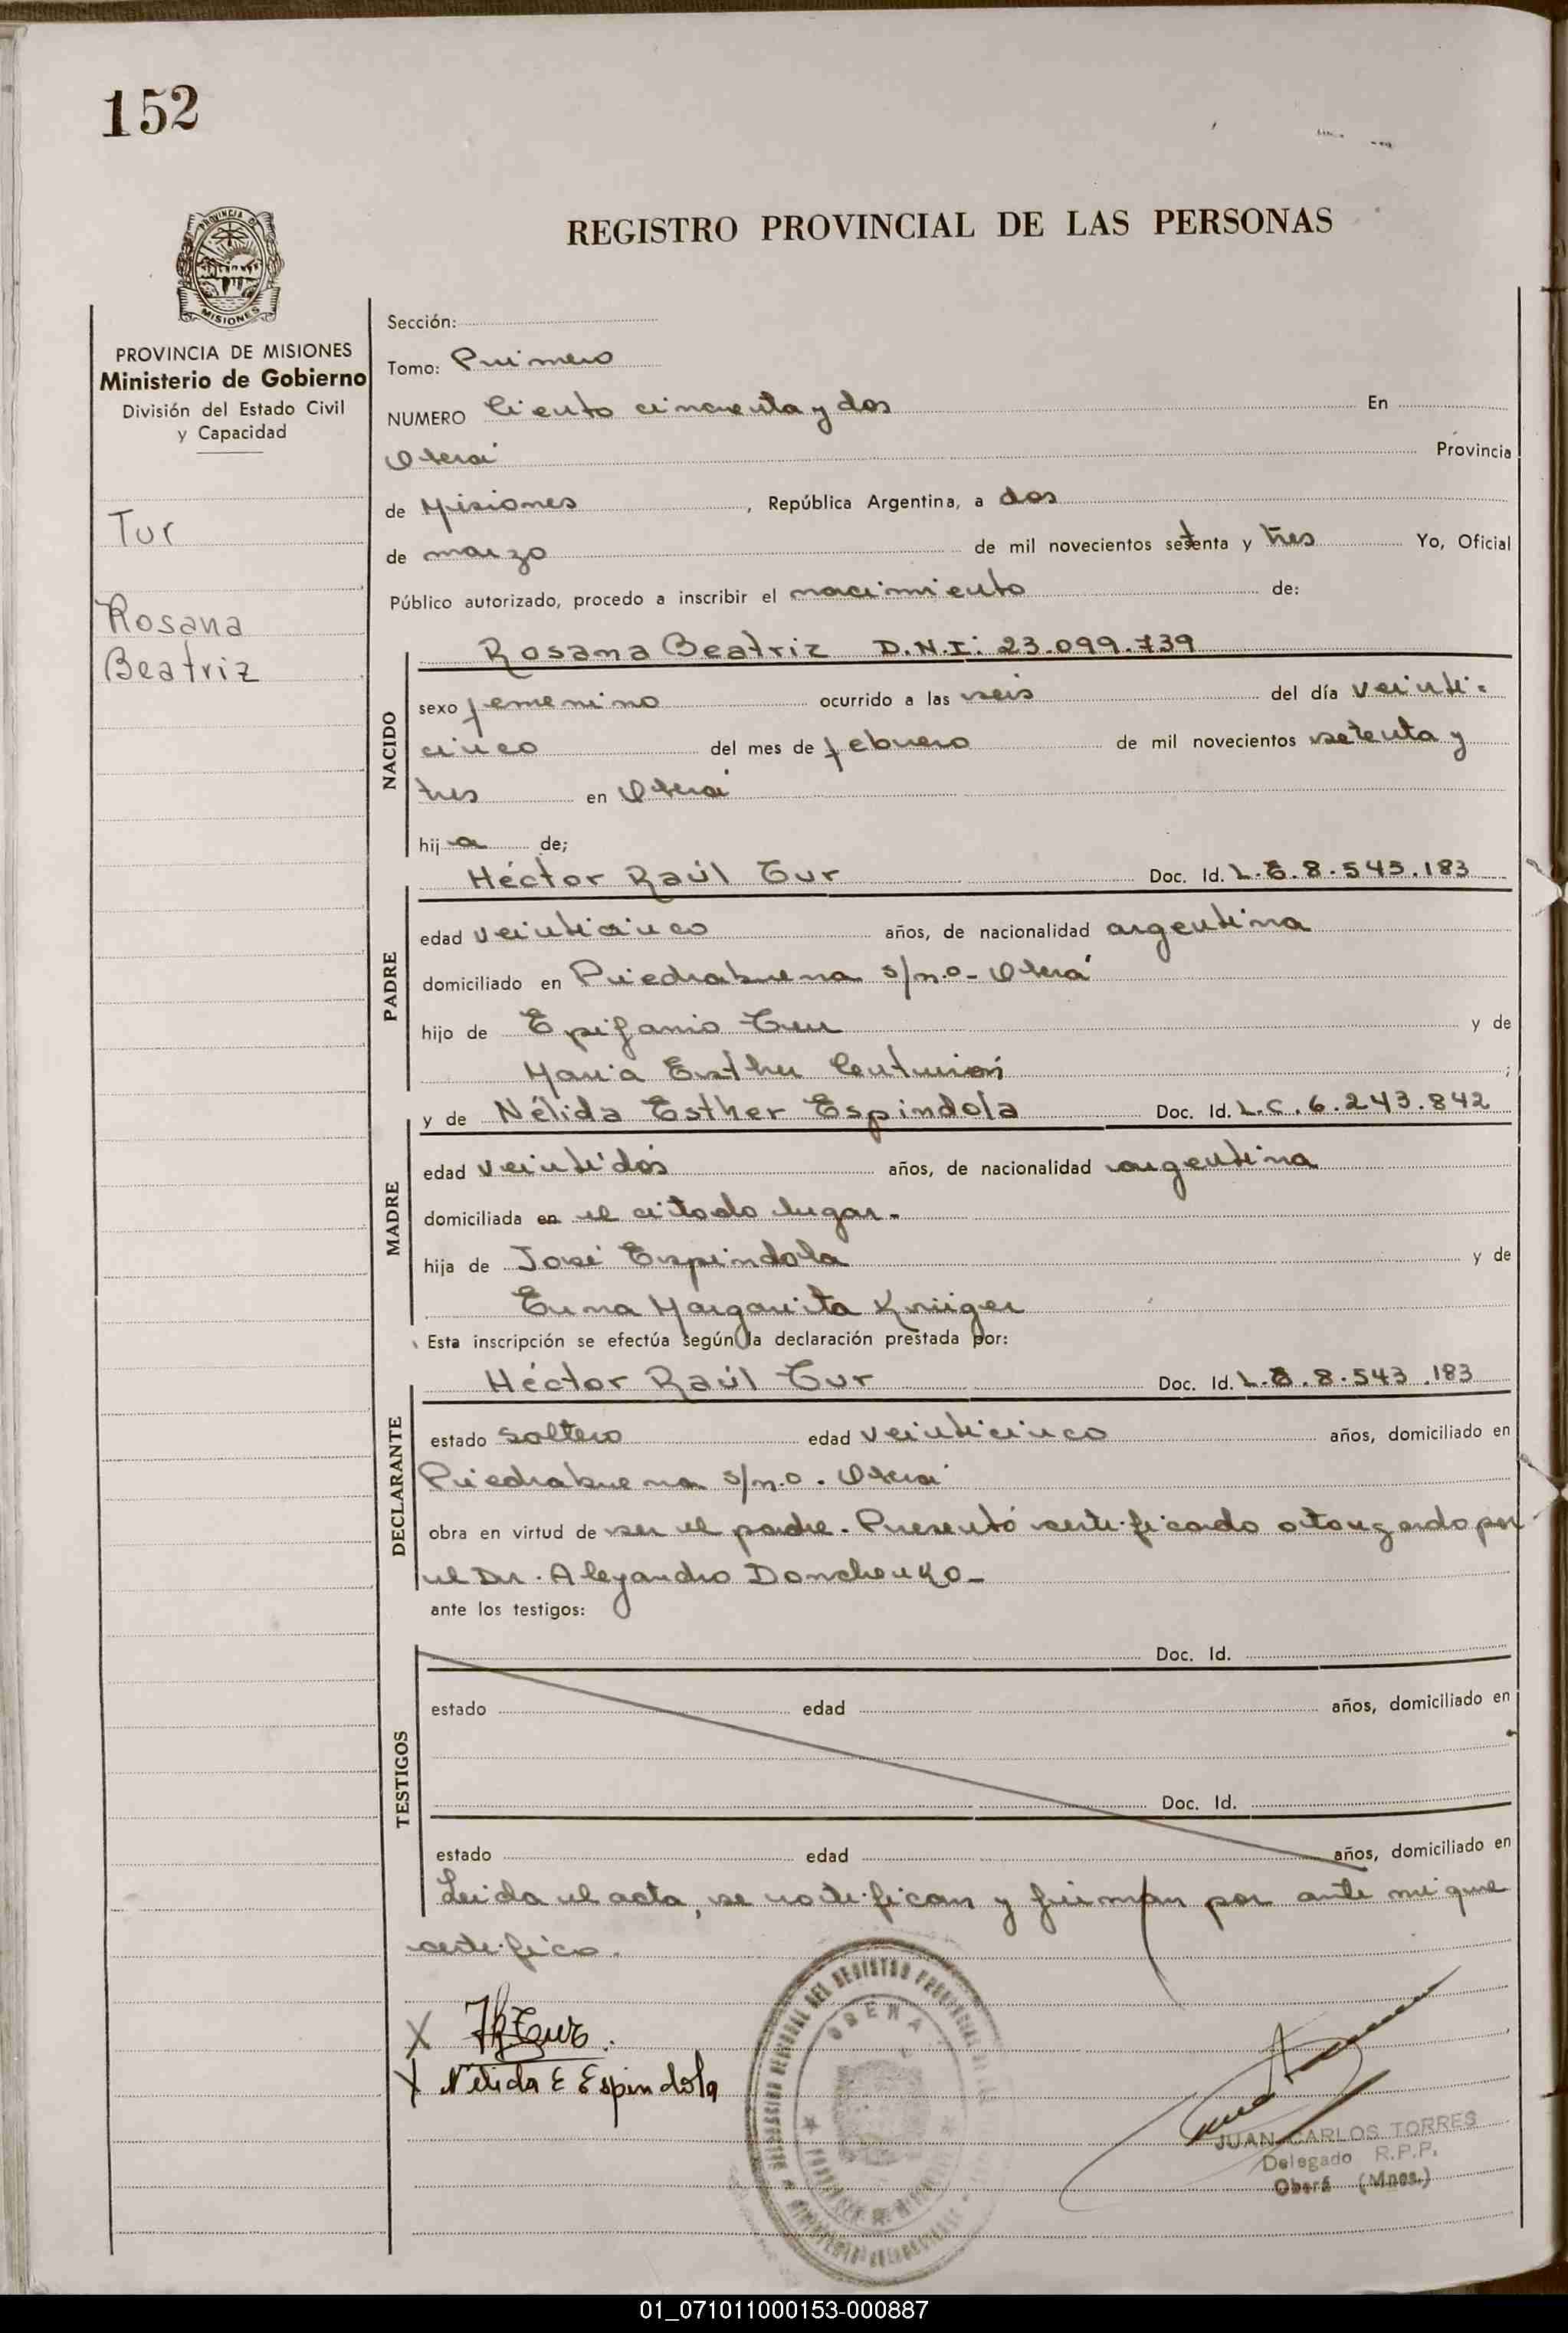 152
PROVINCIA DE
MISIONES
REGISTRO PROVINCIAL DE LAS PERSONAS
PROVINCIA DE MISIONES
Ministerio de Gobierno
División del Estado Civil
y Capacidad
Tur
Rosana
Beatriz
Sección:
Tomo: Primero
NUMERO Ciento cincuenta y dos En
Oberá Provincia
de Misiones, República Argentina, a dos
de marzo de mil novecientos setenta y tres Yo, Oficial
Público autorizado, procedo a inscribir el nacimiento de:
NACIDO
Rosana Beatriz D.N.I: 23.099.739
sexo femenino ocurrido a las seis del día veinti-
cinco del mes de febrero de mil novecientos setenta y
tres en Oberá
hija de;
PADRE
Héctor Raúl Tur Doc. Id. L.E.8.543.183
edad veinticinco años, de nacionalidad argentina
domiciliado en Piedrabuena s/n.o- Oberá
hijo de Epifanio Tur y de
María Esther Centurión ;
MADRE
y de Nélida Esther Espindola Doc. Id. L.C.6.243.842
edad veintidós años, de nacionalidad argentina
domiciliada en el citado lugar.-
hija de José Espindola y de
Erma Margarita Krüiger
Esta inscripción se efectúa según la declaración prestada por:
DECLARANTE
Héctor Raúl Tur Doc. Id. L.E.8.543.183
estado soltero edad veinticinco años, domiciliado en
Piedrabuena s/n.o. Oberá
obra en virtud de ser el padre. Presentó certificado otorgado por
el Dr. Alejandro Donchenko.-
ante los testigos:
TESTIGOS
Doc. Id.
estado edad años, domiciliado en
Doc. Id.
estado edad años, domiciliado en
Leída el acta, se notifican y firman por ante mi que
certifico.
X HRTur.
X Nélida E Espindola
DELEGACION REGIONAL DEL REGISTRO PROVINCIAL DE LAS
OBERA
JUAN CARLOS TORRES
Delegado R.P.P.
Oberá (Mnes.)
01_071011000153-000887